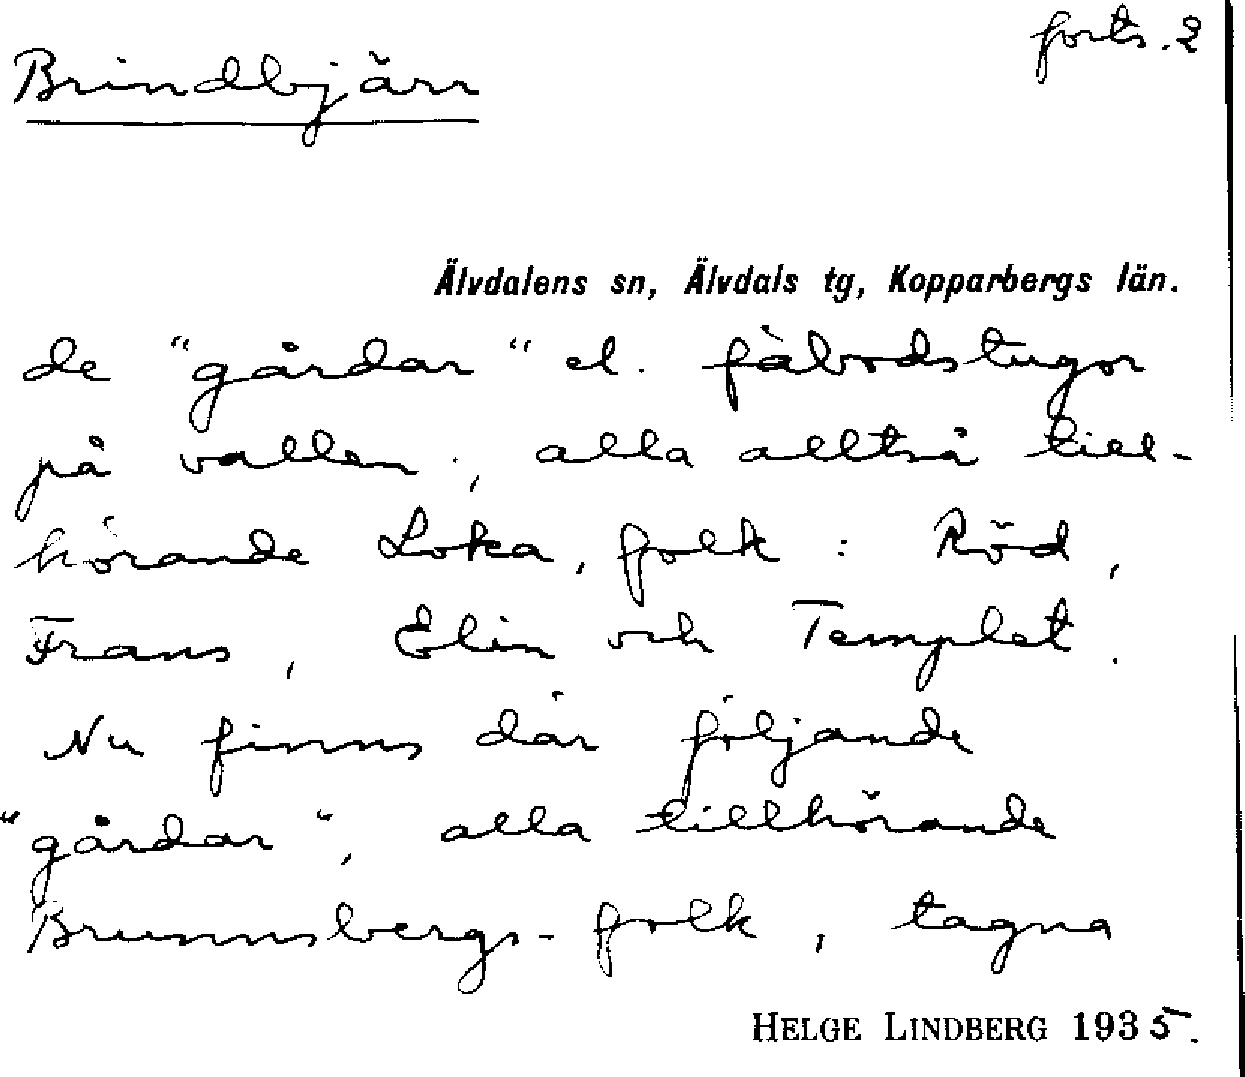 forts. 2
Brindbjärr
Älvdalens sn, Älvdals tg, Kopparbergs län.
de "gårdar" el. fäbodstugor
på vallen, alla alltså till-
hörande Loka, folk: Röd,
Frans, Elin och Templet.
Nu finns där följande
"gårdar", alla tillhörande
Brunnsbergs-folk, tagna
HELGE LINDBERG 1935.